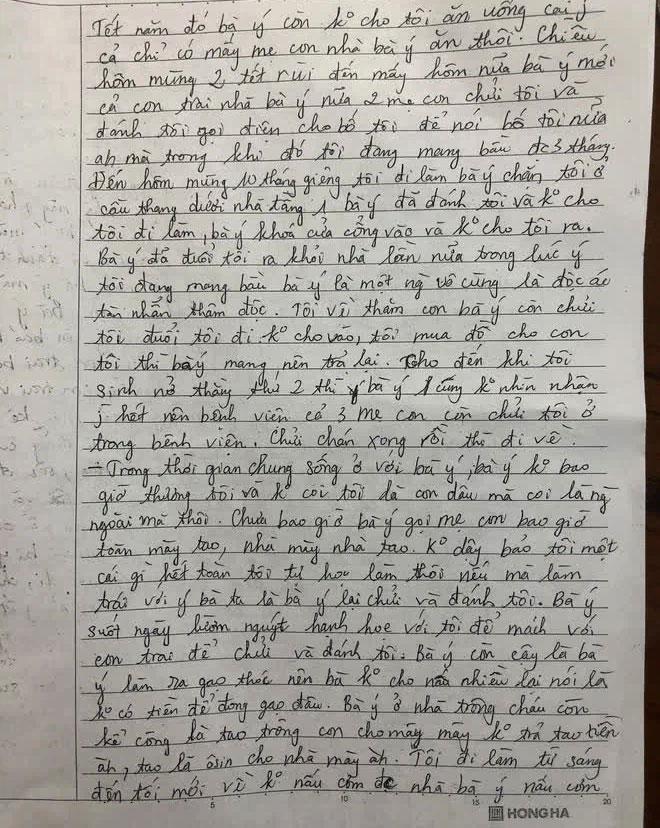 Tết năm đó bà ý còn k° cho tôi ăn uống cái j
cả chỉ có mấy mẹ con nhà bà ý ăn thôi. Chiều
hôm mùng 2 tết rùi đến mấy hôm nữa bà ý mới
cả con trai nhà bà ý nữa 2 mẹ con chửi tôi và
đánh tôi gọi điện cho bố tôi để nói bố tôi nữa
ah mà trong khi đó tôi đang mang bầu đc 3 tháng.
Đến hôm mùng 10 tháng giêng tôi đi làm bà ý chặn tôi ở
cầu thang dưới nhà tầng 1 bà ý đã đánh tôi và k° cho
tôi đi làm, bà ý khoá cửa cổng vào và k° cho tôi ra.
Bà ý đã đuổi tôi ra khỏi nhà lần nữa trong lúc ý
tôi đang mang bầu bà ý là một ng vô cùng là độc ác
tàn nhẫn thâm độc. Tôi về thăm con bà ý còn chửi
tôi đuổi tôi đi k° cho vào, tôi mua đồ cho con
tôi thì bà ý mang nên trả lại. Cho đến khi tôi
sinh nở thằng thứ 2 thì bà ý cũng k° nhìn nhận
j hết nên bệnh viện cả 3 mẹ con còn chửi tôi ở
trong bệnh viện. Chửi chán xong rồi thì đi về.
- Trong thời gian chung sống ở với bà ý, bà ý k° bao
giờ thương tôi và k° coi tôi là con dâu mà coi là ng
ngoài mà thôi. Chưa bao giờ bà ý gọi mẹ con bao giờ
toàn mày tao, nhà mày nhà tao. K° dậy bảo tôi một
cái gì hết toàn tôi tự học làm thôi nếu mà làm
trái với ý bà ta là bà ý lại chửi và đánh tôi. Bà ý
suốt ngày lườm nguýt hạnh họe với tôi để mách với
con trai để chửi và đánh tôi. Bà ý còn cậy là bà
ý làm ra gạo thóc nên bà k° nhiều lại nói là
k° có tiền để đong gạo đâu. Bà ý ở nhà trông cháu còn
kể công là tao trông con cho mày mày k° trả tao tiền
ah, tao là ôsin cho nhà mày ah. Tôi đi làm từ sáng
đến tối mới về k° nấu cơm đc nhà bà ý nấu cơm
5 10 15 20
HONG HA